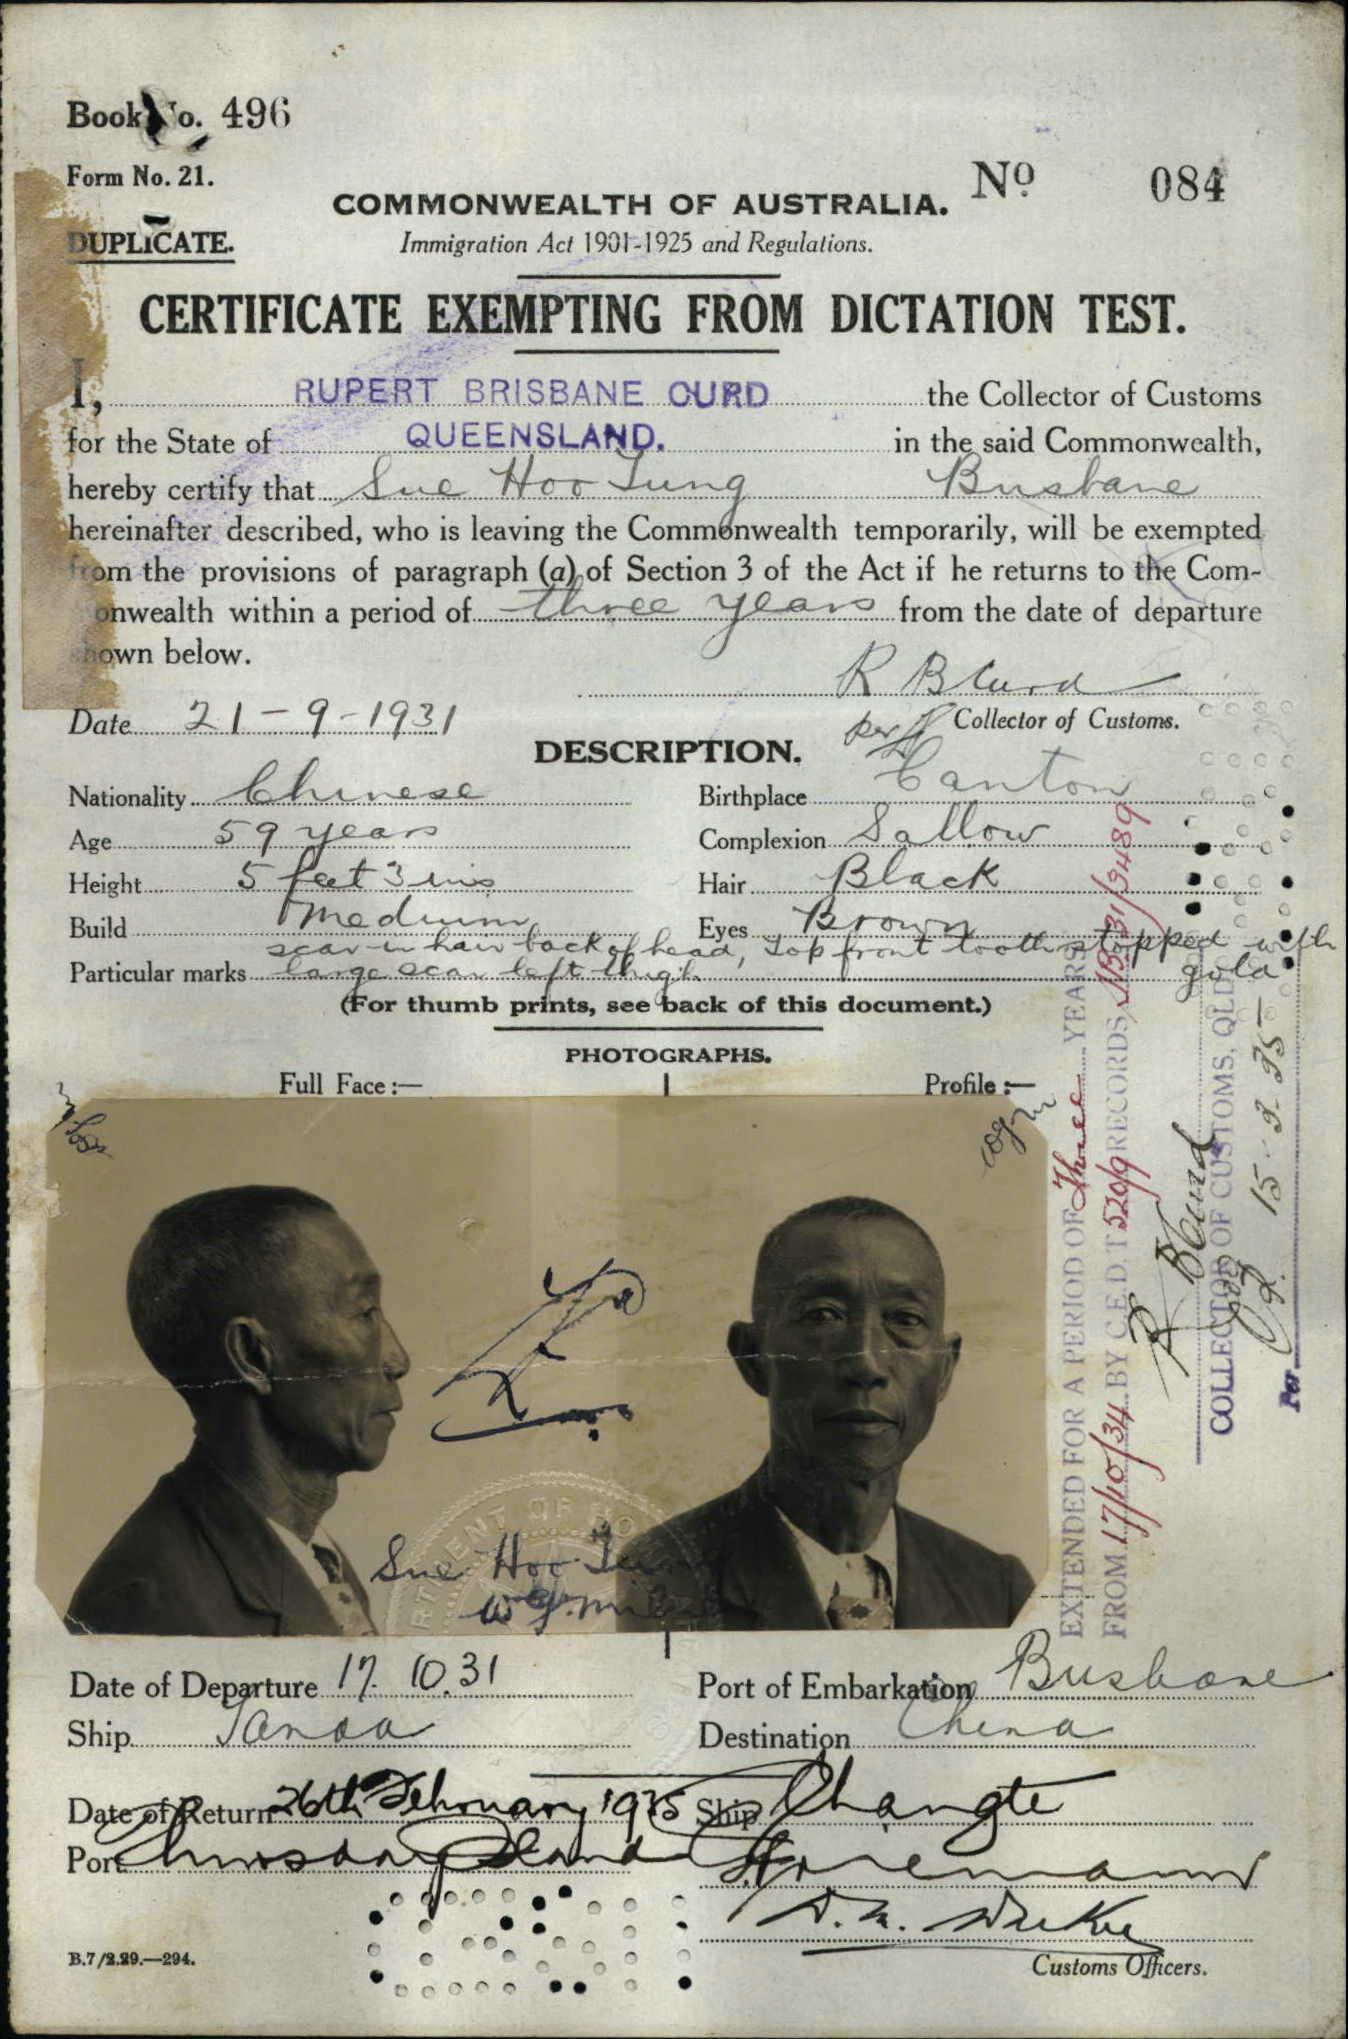 Book No. 496
Form No. 21.
No 084
COMMONWEALTH OF AUSTRALIA.
DUPLICATE.
Immigration Act 1901-1925 and Regulations.
CERTIFICATE EXEMPTING FROM DICTATION TEST.
I, RUPERT BRISBANE CURD the Collector of Customs
for the State of QUEENSLAND. in the said Commonwealth,
hereby certify that Sue Hoo Tung Brisbane
hereinafter described, who is leaving the Commonwealth temporarily, will be exempted
from the provisions of paragraph (a) of Section 3 of the Act if he returns to the Com-
onwealth within a period of three years from the date of departure
shown below.
R B Curd
Date 21-9-1931
per
Collector of Customs.
DESCRIPTION.
Nationality Chinese
Birthplace Canton
Age 59 years
Complexion Sallow
Height 5 feet 3 ins
Hair Black
Build Medium
Eyes Brown
scar in hair back of head, top front tooth stopped with
Particular marks large scar left thigh gold
(For thumb prints, see back of this document.)
PHOTOGRAPHS.
Full Face:—
Profile:—
Sue Hoo Tung
EXTENDED FOR A PERIOD OF Three YEARS
FROM 17/10/34 BY C.E.D.T. 520/9 RECORDS NB31/3489
R B Curd
COLLECTOR OF CUSTOMS, QLD
15-3-35
Per
Date of Departure 17.10.31
Port of Embarkation Brisbane
Ship Tanda
Destination China
Date of Return 26th February 1935
Ship Changte
Port Thursday Island
Customs Officers.
B.7/2.29.—294.